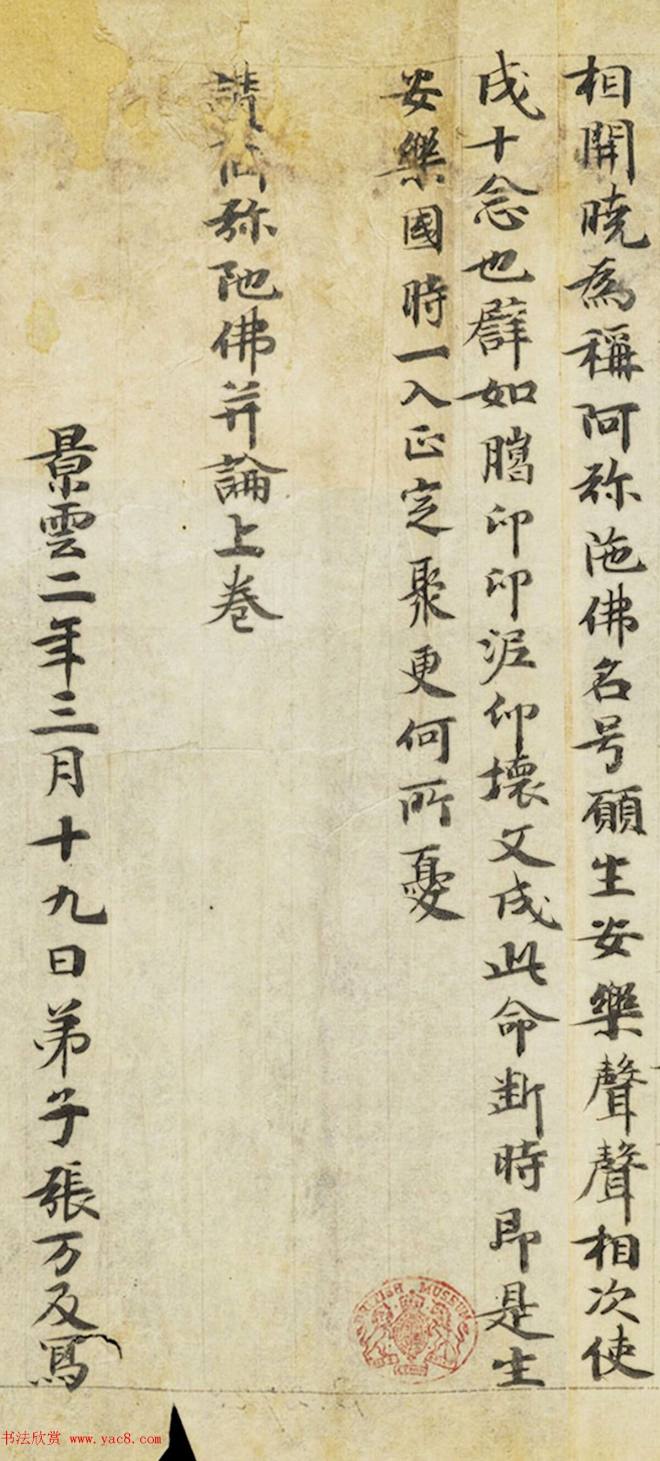 相開曉為稱阿弥陁佛名号願生安樂聲聲相次使
成十念也譬如𦢊印印泥印壞文成此命断時即是生
安樂國時一入正定聚更何所憂
讃阿弥陁佛并論上卷
景雲二年三月十九日弟子張万及寫
BRITISH MUSEUM
书法欣赏 www.yac8.com